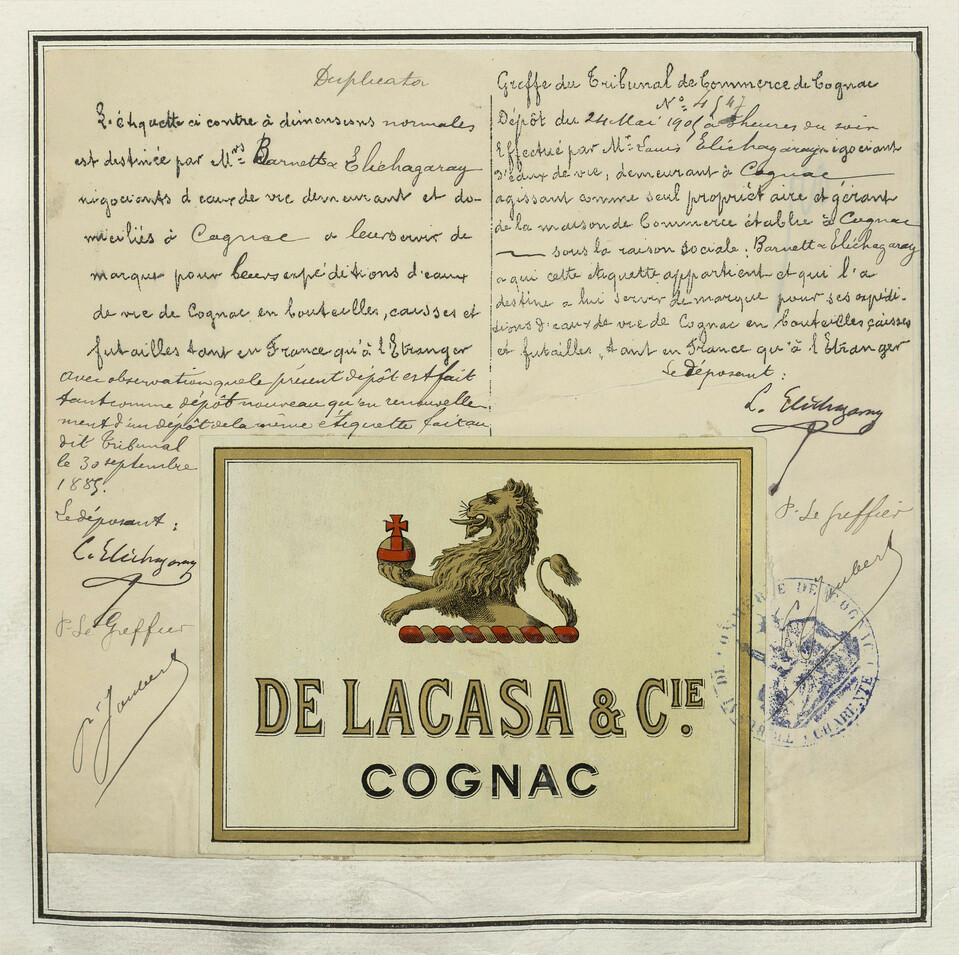 Duplicata
L'étiquette ci contre à dimensions normales
est destinée par Mrs Barnett & Elichagaray
négociants d'eaux de vie demeurant et do-
miciliés à Cognac a leur servir de
marque pour leurs expéditions d'eaux
de vie de Cognac en bouteilles, caisses et
futailles tant en France qu'à l'Etranger
avec observation que le présent dépôt est fait
tant comme dépôt nouveau qu'en renouvelle-
ment d'un dépôt de la même étiquette fait au
dit Tribunal
le 30 septembre
1885.
Le déposant :
L. Elichagaray
P. Le Greffier
Joubert
Greffe du Tribunal de Commerce de Cognac
No 4547
Dépôt du 24 Mai 1905 à heures du soir
Effectué par Mr Louis Elichagaray négociant
d'eaux de vie, demeurant à Cognac
agissant comme seul propriétaire et gérant
de la maison de Commerce établie à Cognac
sous la raison sociale : Barnett & Elichagaray
a qui cette étiquette appartient et qui l'a
destine a lui servir de marque pour ses expédi-
tions d'eaux de vie de Cognac en bouteilles caisses
et futailles, tant en France qu'à l'Etranger
Le déposant :
L. Elichagaray
P. Le Greffier
Joubert
DE LACASA & CIE.
COGNAC
CHARENTE